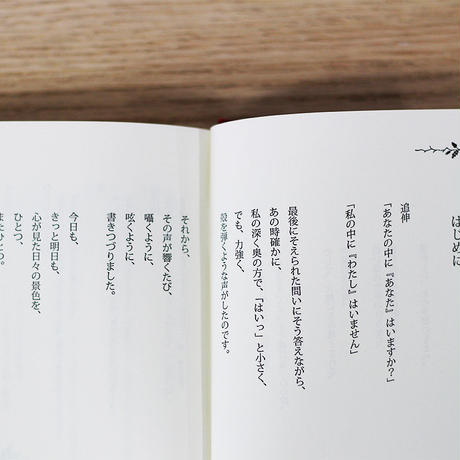 はじめに
追伸
「あなたの中に『あなた』はいますか？」
「私の中に『わたし』はいません」
最後にそえられた問いにそう答えながら、
あの時確かに、
私の深く奥の方で、「はいっ」と小さく、
でも、力強く、
殻を弾くような声がしたのです。
それから、
その声が響くたび、
囁くように、
呟くように、
書きつづりました。
今日も、
きっと明日も、
心が見た日々の景色を、
ひとつ、
またひとつ。